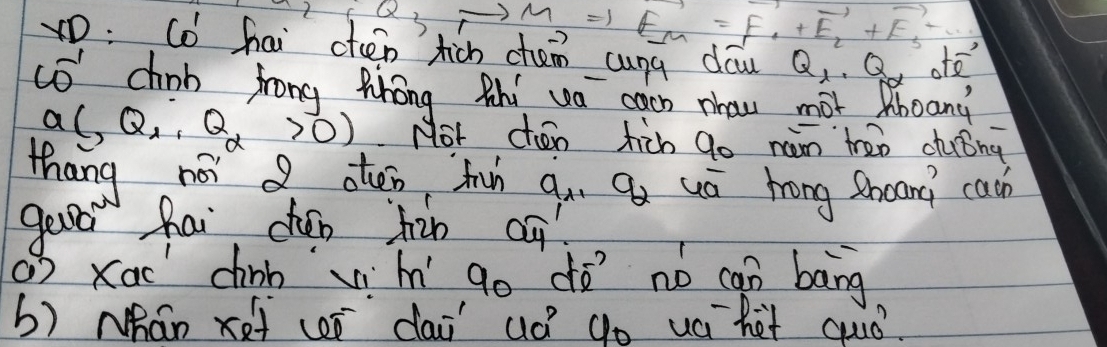 Q₃ → M ⇒ E⃗_M = E⃗₁ + E⃗₂ + E⃗₃ ...
VD: Có hai điện tích điểm cùng dấu Q₁, Q₂ để
cố định trong không khí và cách nhau một khoảng
a (Q₁, Q₂ > 0). Một điện tích q₀ nằm trên đường
thẳng nối 2 điện tích q₁, q₂ và trong khoảng cách
giữa hai điện tích ấy.
a) Xác định vị trí q₀ để nó cân bằng
b) Nhận xét về dấu của q₀ và kết quả.